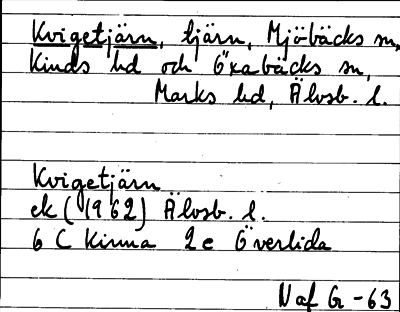 Kvigetjärn, tjärn, Mjöbäcks sn,
Kinds hd och Öxabäcks sn,
Marks hd, Älvsb. l.
Kvigetjärn
ek (1962) Älvsb. l.
6 C Kinna 2e Överlida
N af G -63